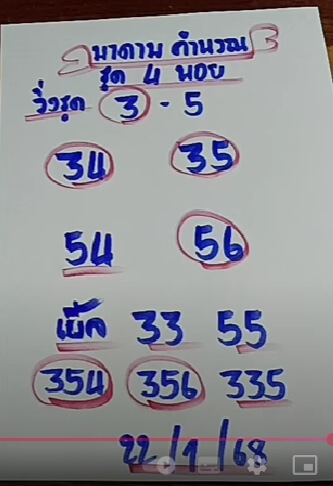 มาดาม คำนวณ
ชุด 4 หอย
วิ่งรูด 3 - 5
34 35
54 56
เบิ้ล 33 55
354 356 335
22/1/68